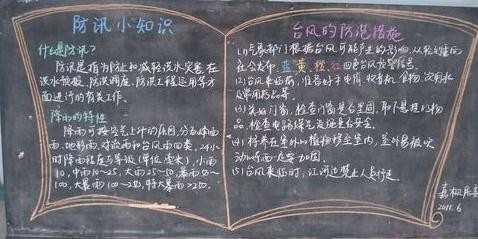 防汛小知识
什么是防汛?
防汛是指为防止和减轻洪水灾害,在
洪水预报、防洪调度、防洪工程运用等方
面进行的有关工作。
降雨的特性
降雨可按空气上升的原因,分为锋面
雨、地形雨、对流雨和台风雨四类,24小
时降雨程度与等级(单位:毫米),小雨
10,中雨10~25,大雨25~50,暴雨50~
100,大暴雨100~200,特大暴雨>200.
台风的防范措施
(1)气象部门根据台风可能产生的影响,从轻到重
蓝、黄、橙、红四色台风预警信号。
(2)台风来临前,准备好手电筒、收音机、食物、饮用水
及常用药品等
(3)关好门窗,检查门窗是否坚固,取下悬挂的物
品,检查电路煤气设施是否安全。
(4)将养在室外的植物移至室内,室外易被吹
动的东西 加固。
(5)台风来临时,江河边禁止人员行走
2015.6